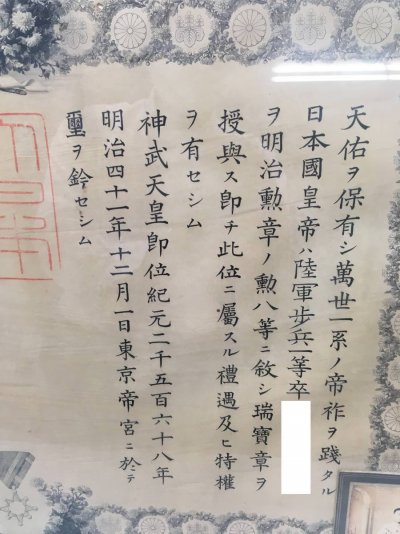 天佑ヲ保有シ萬世一系ノ帝祚ヲ踐タル
日本國皇帝ハ陸軍歩兵一等卒
ヲ明治勲章ノ勲八等ニ敘シ瑞寶章ヲ
授與ス卽チ此位ニ屬スル禮遇及ヒ特權
ヲ有セシム
神武天皇卽位紀元二千五百六十八年
明治四十一年十二月一日東京帝宮ニ於テ
璽ヲ鈐セシム